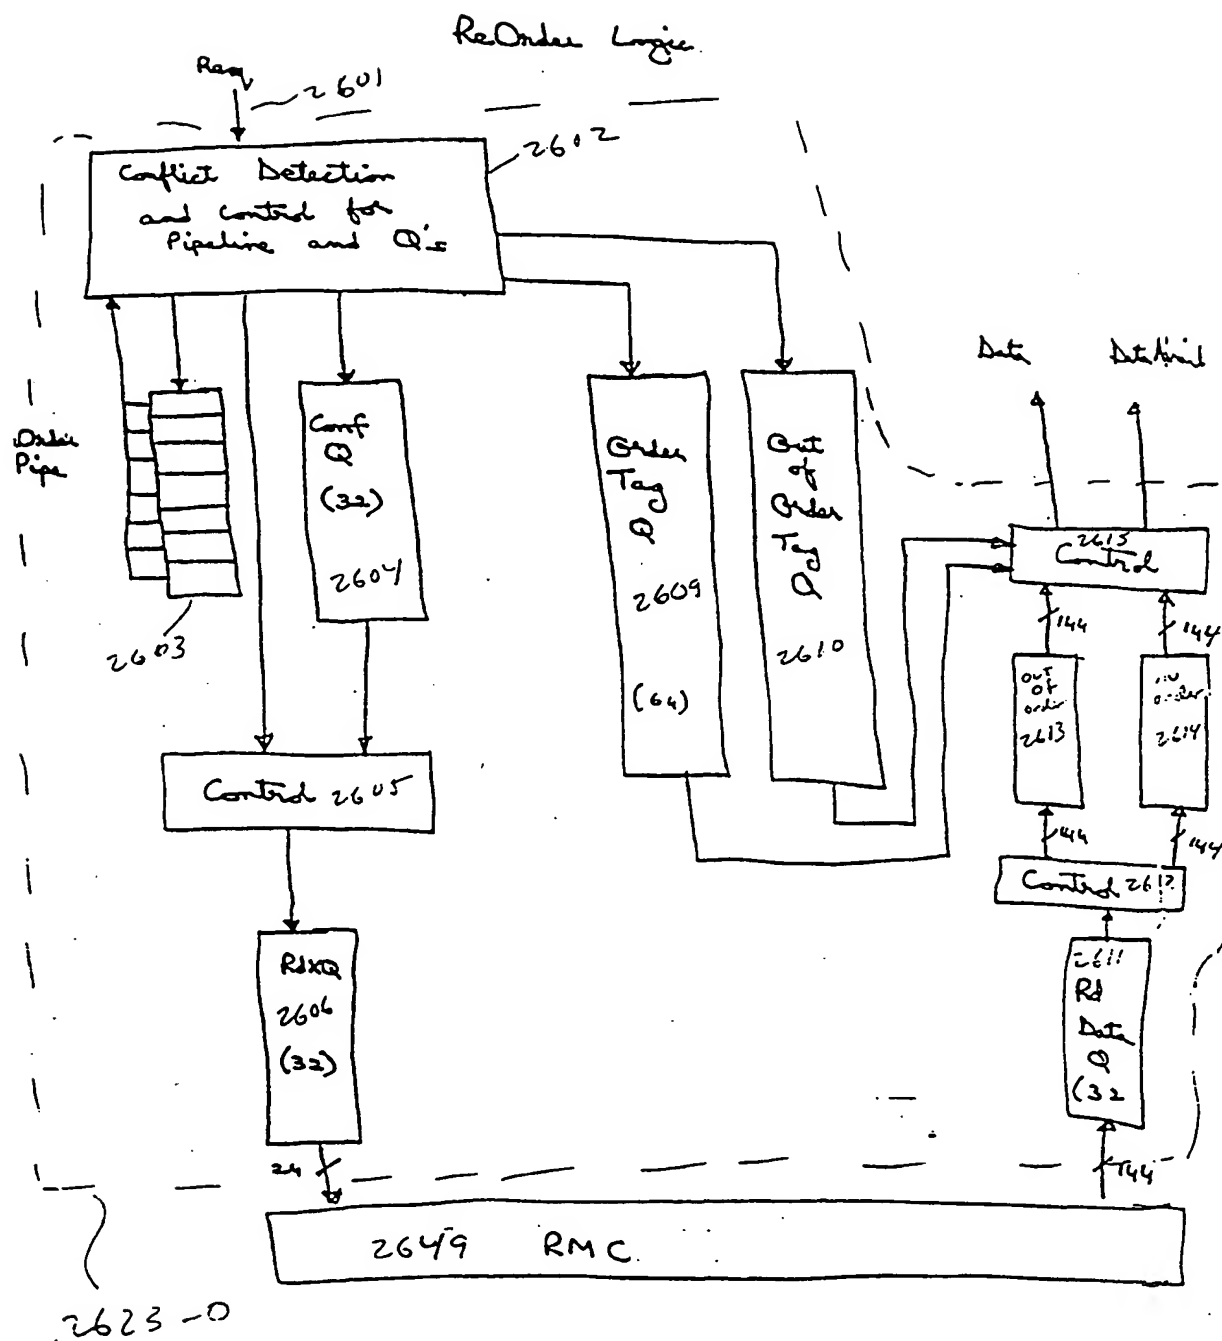 ReOrder Logic
Req
2601
2602
Conflict Detection
and control for
Pipeline and Q's
Order
Pipe
2603
Conf
Q
(32)
2604
Order
Tag
Q
2609
(64)
Out
of
Order
Tag
Q
2610
Data
DataAvail
2615
Control
144
144
out
of
order
2613
order
2614
144
144
Control 2612
2611
Rd
Data
Q
(32
144
Control 2605
RdxQ
2606
(32)
24
2649 RMC
2623-0